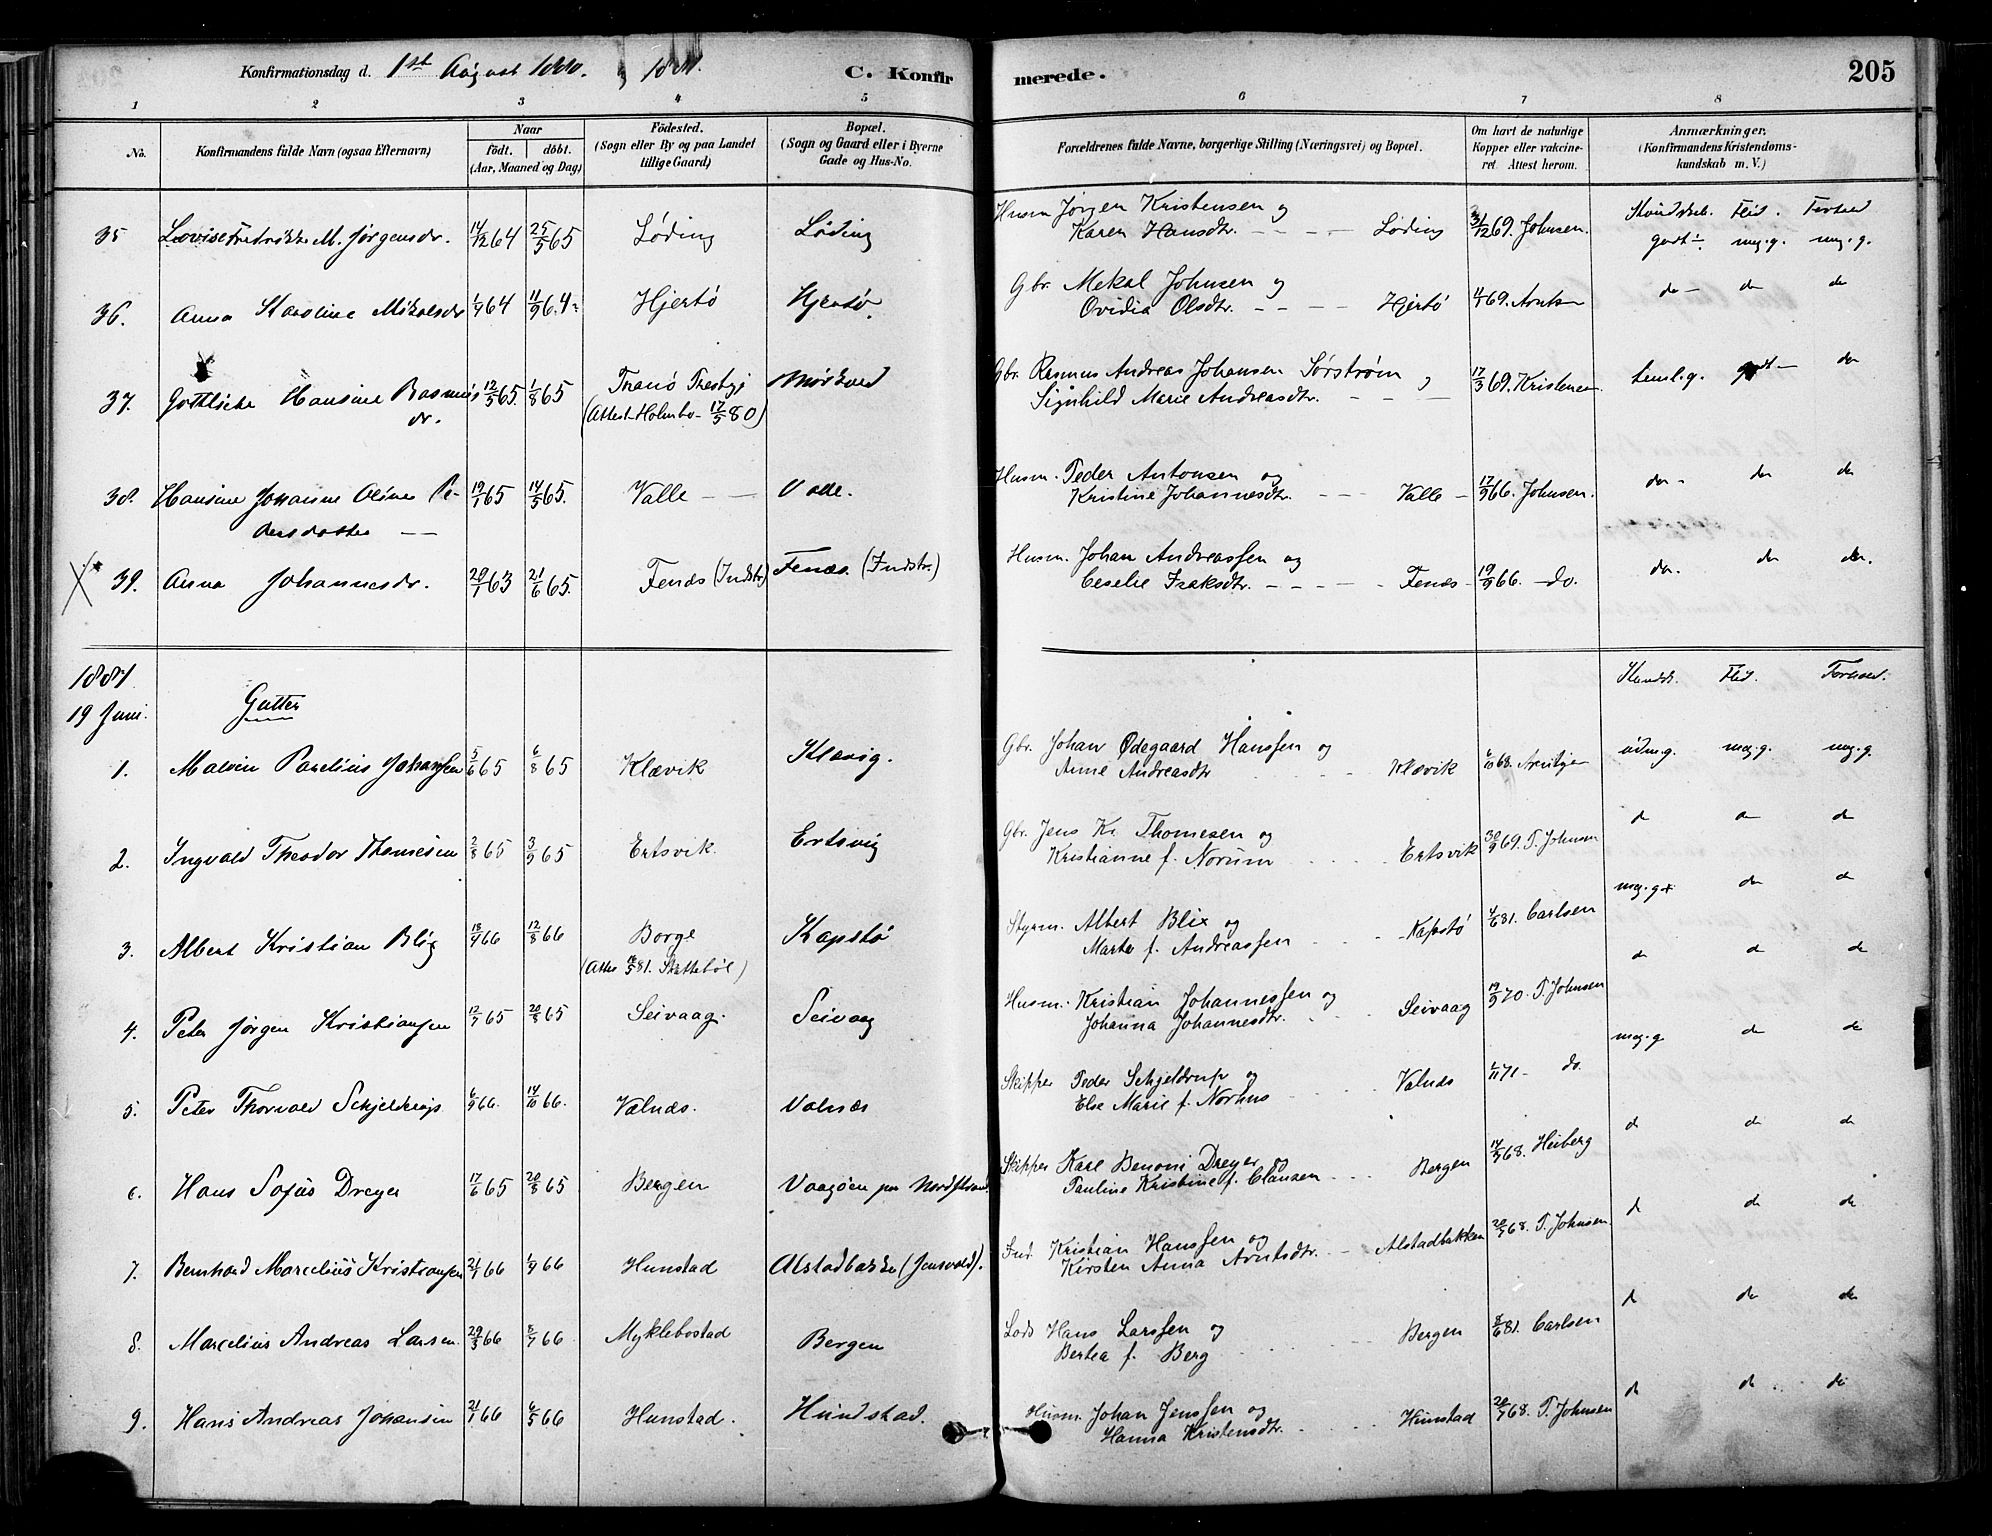 Konfirmationsdag d. 1st August 1880. og 1881. C. Konfir merede. 205
1 2 3 4 5 6 7 8
No. Konfirmandens fulde Navn (ogsaa Efternavn) Naar födt. döbt. (Aar, Maaned og Dag) Födested. (Sogn eller By og paa Landet tillige Gaard) Bopæl. (Sogn og Gaard eller i Byerne Gade og Hus-No. Forældrenes fulde Navne, borgerlige Stilling (Næringsvei) og Bopæl. Om havt de naturlige Kopper eller vakcineret. Attest herom. Anmærkninger. (Konfirmandens Kristendomskundskab m. V.)
35 Lovise Fredrikke M. Jørgensdr. 14/12 64 25/5 65 Løding Løding Husm. Jørgen Kristensen og Karen Hansdtr. Løding 31/12 69. Johnsen. Kundskab. Flid. Forhold godt meg. g. meg. g.
36. Anna Karoline Mikalsdr 1/4 64 11/9 64 Hjertø Hjertø. Gbr. Mekal Johnsen og Ovidia Olsdtr. Hjertø 4/1 69. do do do
37. Gothlieke Hansine Rasmusdr. 12/5 65. 1/8 65 Tranö Præstgj (Attest Holmbo 17/5 80) Mørkved Gbr. Rasmus Andreas Johansen Sørstrøm og Signhild Marie Andreasdtr. 17/3 69. Kristensen teml. g. godt do
38. Hansine Johanne Oline Pedersdatter 19/1 65 14/5 65. Valle Valle. Husm. Peder Antonsen og Kristine Johannesdtr. Valle 17/9 66. Johnsen. do do do
39. Anna Johannesdr. 29/1 63 21/6 65. Fenæs (Indstr.) Fenæs. (Indstr.) Husm. Johan Andreassen og Ceselie Isaksdtr. Fenæs 19/9 66. do. do. do do.
1881 19 Juni. Gutter Kundsk. Flid. Forhold.
1. Malvin Parelius Johansen 5/6 65 6/8 65 Klævik Klævig. Gbr. Johan Ødegaard Hanssen og Anne Andreasdtr Klævik 6/10 68. udm. g. meg. g. meg. g.
2. Ingvald Theodor Thomesen 2/8 65 3/9 65 Ertsvik. Ertsvig Gbr. Jens Kr. Thomesen og Kristianne f. Norum Ertsvik 30/9 69. T. Johnsen d d d
3. Albert Kristian Blix 18/4 66 12/8 66 Borge (Attest 18/5 81. Skttebøl) Kapstø Styrm. Albert Blix og Marta f. Andreassen Kapstø 4/6 81. Carlsen meg. g+ do d
4. Peter Jørgen Kristiansen 12/7 65 20/8 65 Seivaag. Seivaag Husm. Kristian Johannessen og Johanna Johannesdtr. Seivaag 19/9 70. T. Johnsen d d d
5. Peter Thorvald Schjelderup 6/9 66. 14/10 66. Valnæs. Valnæs Skipper Peder Schjeldrup og Else Marie f. Norhus Valnæs 1/11 71 do. meg. g d d
6. Hans Sofus Dreyer 17/6 65 20/8 65 Bergen Vaagöen pr Nordstrand. Skipper Karl Benoni Dreyer og Pauline Kristine f. Clausen Bergen 14/7 68. Heiberg d d d
7. Bernhard Marcelius Kristiansen 21/1 66 1/4 66 Hunstad Alstadbakke (Jensvold). Ind. Kristian Hanssen og Kirsten Anna Arntsdtr. Alstadbakken 20/7 68. T. Johnsen. d d d
8. Marcelius Andreas Larsen. 29/3 66 8/7 66 Myklebostad Bergen Lods Hans Larssen og Bertea f. Berg Bergen 8/6 81. Carlsen d do do
9. Hans Andreas Johansen 21/1 66 6/5 66 Hunstad. Hundstad. Husm. Johan Jenssen og Hanna Kristensdtr. Hunstad 20/7 68. T. Johnsen d d do